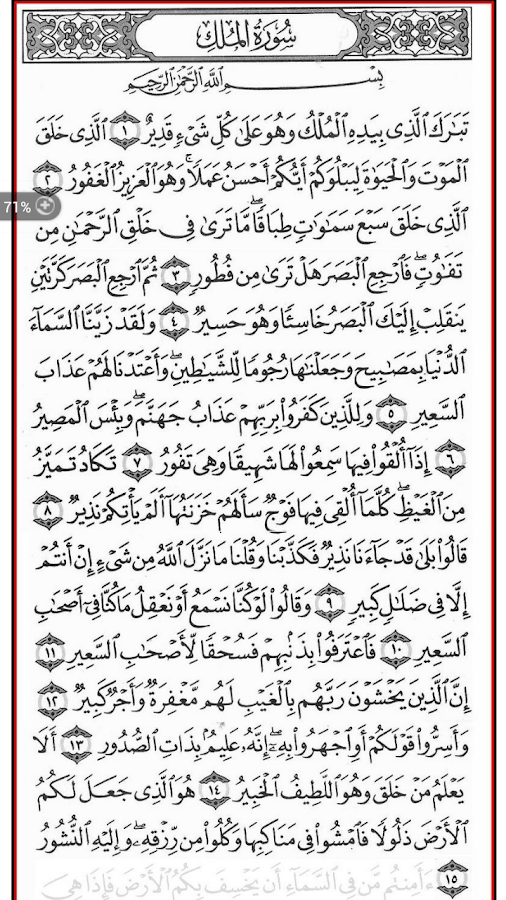 سُورَةُ المُلْكِ
بِسْمِ اللَّهِ الرَّحْمَٰنِ الرَّحِيمِ
تَبَارَكَ الَّذِي بِيَدِهِ الْمُلْكُ وَهُوَ عَلَىٰ كُلِّ شَيْءٍ قَدِيرٌ ١ الَّذِي خَلَقَ
الْمَوْتَ وَالْحَيَاةَ لِيَبْلُوَكُمْ أَيُّكُمْ أَحْسَنُ عَمَلًا ۚ وَهُوَ الْعَزِيزُ الْغَفُورُ ٢
71%
الَّذِي خَلَقَ سَبْعَ سَمَاوَاتٍ طِبَاقًا ۖ مَّا تَرَىٰ فِي خَلْقِ الرَّحْمَٰنِ مِن
تَفَاوُتٍ ۖ فَارْجِعِ الْبَصَرَ هَلْ تَرَىٰ مِن فُطُورٍ ٣ ثُمَّ ارْجِعِ الْبَصَرَ كَرَّتَيْنِ
يَنقَلِبْ إِلَيْكَ الْبَصَرُ خَاسِئًا وَهُوَ حَسِيرٌ ٤ وَلَقَدْ زَيَّنَّا السَّمَاءَ
الدُّنْيَا بِمَصَابِيحَ وَجَعَلْنَاهَا رُجُومًا لِّلشَّيَاطِينِ ۖ وَأَعْتَدْنَا لَهُمْ عَذَابَ
السَّعِيرِ ٥ وَلِلَّذِينَ كَفَرُوا بِرَبِّهِمْ عَذَابُ جَهَنَّمَ ۖ وَبِئْسَ الْمَصِيرُ
٦ إِذَا أُلْقُوا فِيهَا سَمِعُوا لَهَا شَهِيقًا وَهِيَ تَفُورُ ٧ تَكَادُ تَمَيَّزُ
مِنَ الْغَيْظِ ۖ كُلَّمَا أُلْقِيَ فِيهَا فَوْجٌ سَأَلَهُمْ خَزَنَتُهَا أَلَمْ يَأْتِكُمْ نَذِيرٌ ٨
قَالُوا بَلَىٰ قَدْ جَاءَنَا نَذِيرٌ فَكَذَّبْنَا وَقُلْنَا مَا نَزَّلَ اللَّهُ مِن شَيْءٍ إِنْ أَنتُمْ
إِلَّا فِي ضَلَالٍ كَبِيرٍ ٩ وَقَالُوا لَوْ كُنَّا نَسْمَعُ أَوْ نَعْقِلُ مَا كُنَّا فِي أَصْحَابِ
السَّعِيرِ ١٠ فَاعْتَرَفُوا بِذَنبِهِمْ فَسُحْقًا لِّأَصْحَابِ السَّعِيرِ ١١
إِنَّ الَّذِينَ يَخْشَوْنَ رَبَّهُم بِالْغَيْبِ لَهُم مَّغْفِرَةٌ وَأَجْرٌ كَبِيرٌ ١٢
وَأَسِرُّوا قَوْلَكُمْ أَوِ اجْهَرُوا بِهِ ۖ إِنَّهُ عَلِيمٌ بِذَاتِ الصُّدُورِ ١٣ أَلَا
يَعْلَمُ مَنْ خَلَقَ وَهُوَ اللَّطِيفُ الْخَبِيرُ ١٤ هُوَ الَّذِي جَعَلَ لَكُمُ
الْأَرْضَ ذَلُولًا فَامْشُوا فِي مَنَاكِبِهَا وَكُلُوا مِن رِّزْقِهِ ۖ وَإِلَيْهِ النُّشُورُ
١٥ ءَأَمِنتُم مَّن فِي السَّمَاءِ أَن يَخْسِفَ بِكُمُ الْأَرْضَ فَإِذَا هِيَ